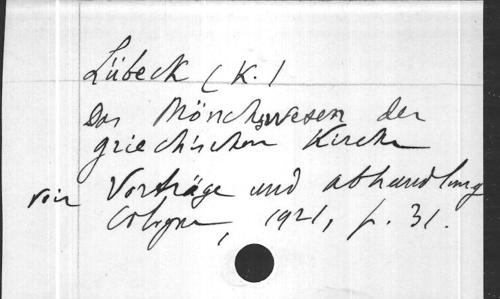 Lübeck (K.)
Das Mönchswesen der
griechischen Kirche
voir Vorträge und abhandlung
Cologne, 1921, p. 31.